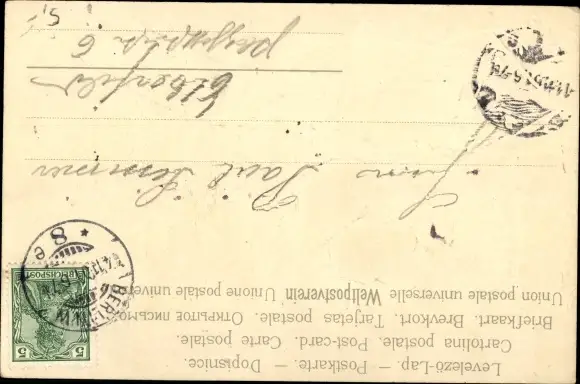 Levelező-Lap. — Postkarte. — Dopisnice.
Cartolina postale. Post-card. Carte postale.
Briefkaart. Brevkort. Tarjetas postale. Открытое письмо.
Union postale universelle Weltpostverein Unione postale universale
REICHSPOST
5
5
BERLIN N.W.
8 e
Herrn Paul Simmer
Elberfeld
6
5.